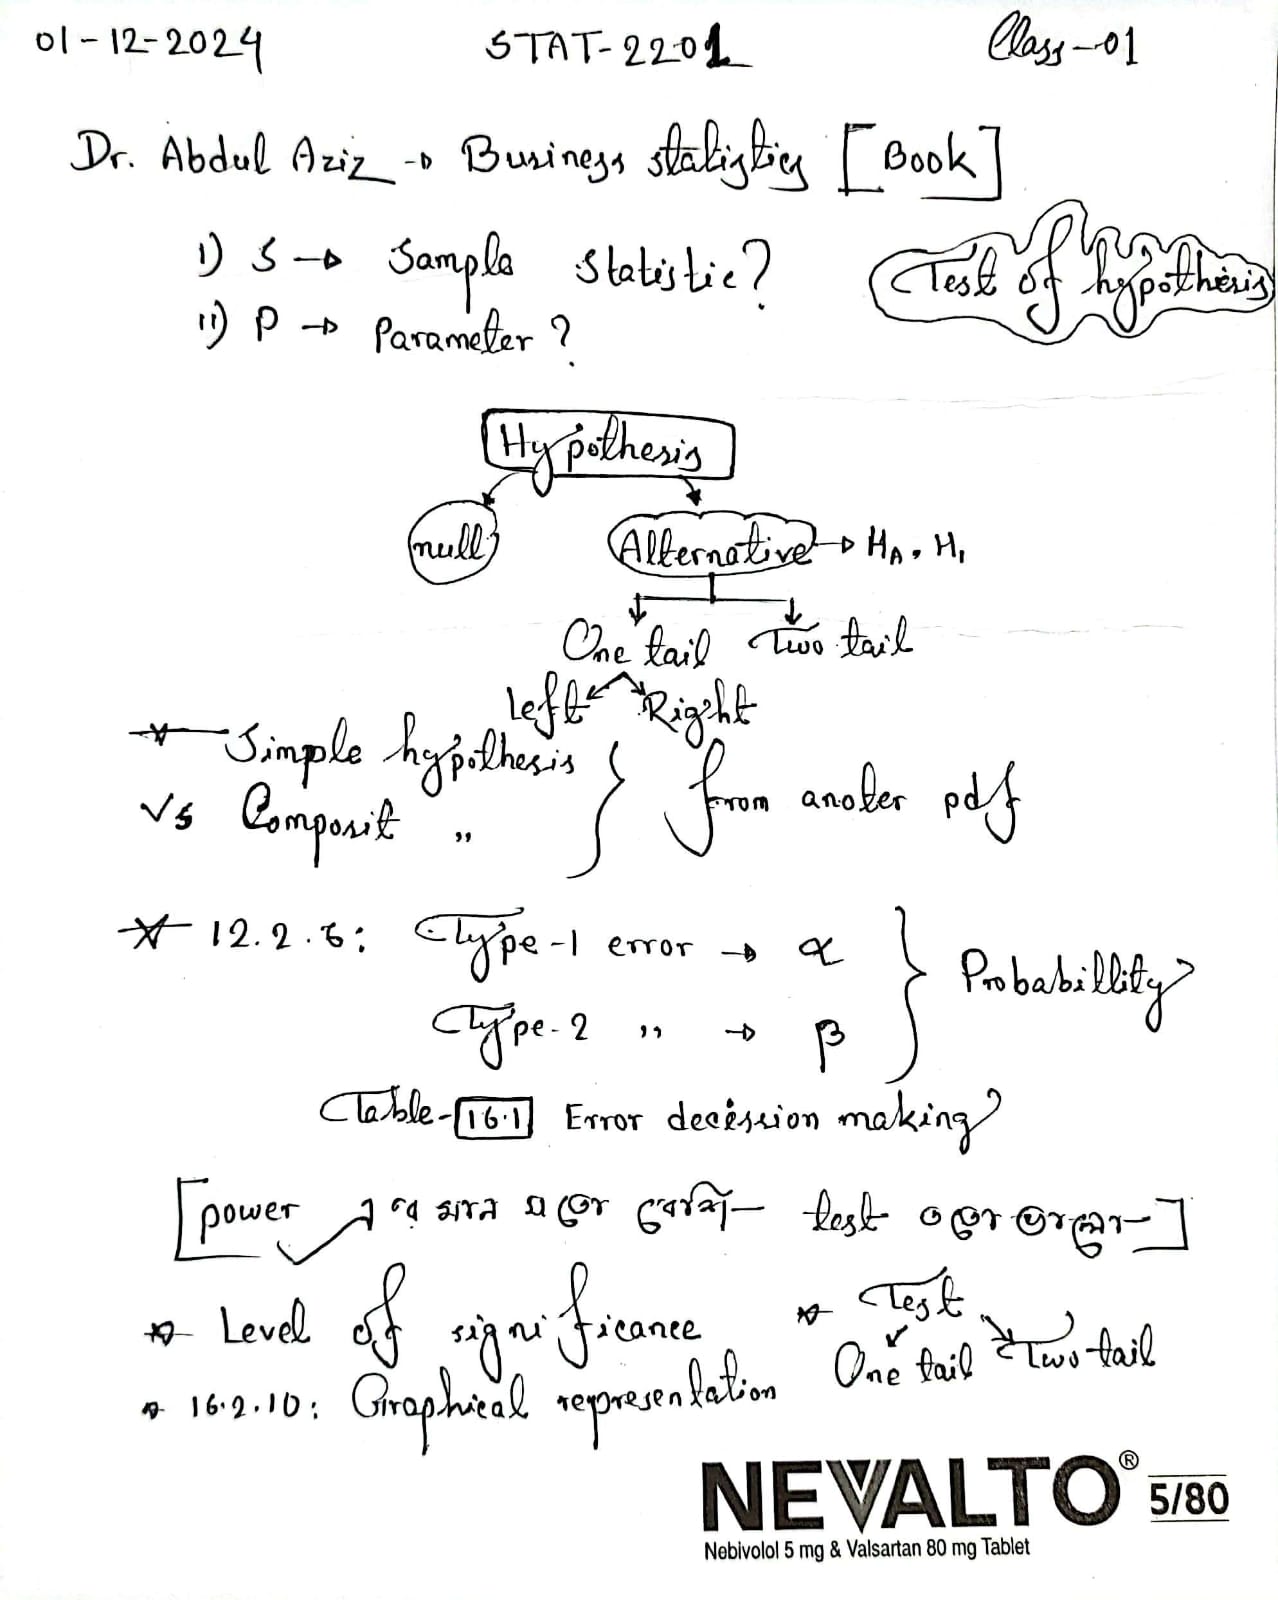 01-12-2024 STAT-2201 Class-01
Dr. Abdul Aziz → Business statistics [Book]
i) S → Sample Statistic?
ii) P → Parameter?
Test of hypothesis
Hypothesis
null Alternative → HA, H1
One tail Two tail
Left Right
* Simple hypothesis
Vs Composit "
} from anoter pdf
* 12.2.6: Type-1 error → α
Type-2 " → β
} Probabillity?
Table-16.1 Error decission making?
[power এর মান যতো বেশি test ততো ভালো]
* Level of significance
* Test
One tail Two tail
* 16.2.10: Graphical representation
NEVALTO® 5/80
Nebivolol 5 mg & Valsartan 80 mg Tablet